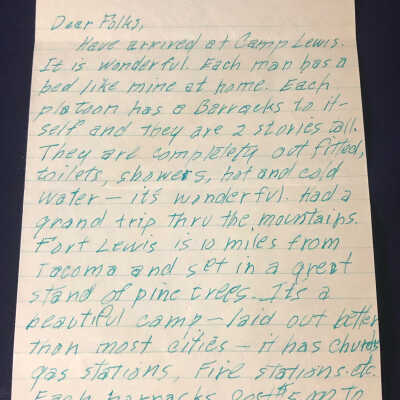 Dear Folks,
Have arrived at Camp Lewis.
It is wonderful. Each man has a
bed like mine at home. Each
platoon has a Barracks to it-
self and they are 2 stories tall.
They are completely out fitted,
toilets, showers, hot and cold
water — it's wonderful. Had a
grand trip thru the mountains.
Fort Lewis is 10 miles from
Tacoma and set in a great
stand of pine trees. It's a
beautiful camp — laid out better
than most cities — it has church
gas stations, fire stations. etc.
Each barracks cost